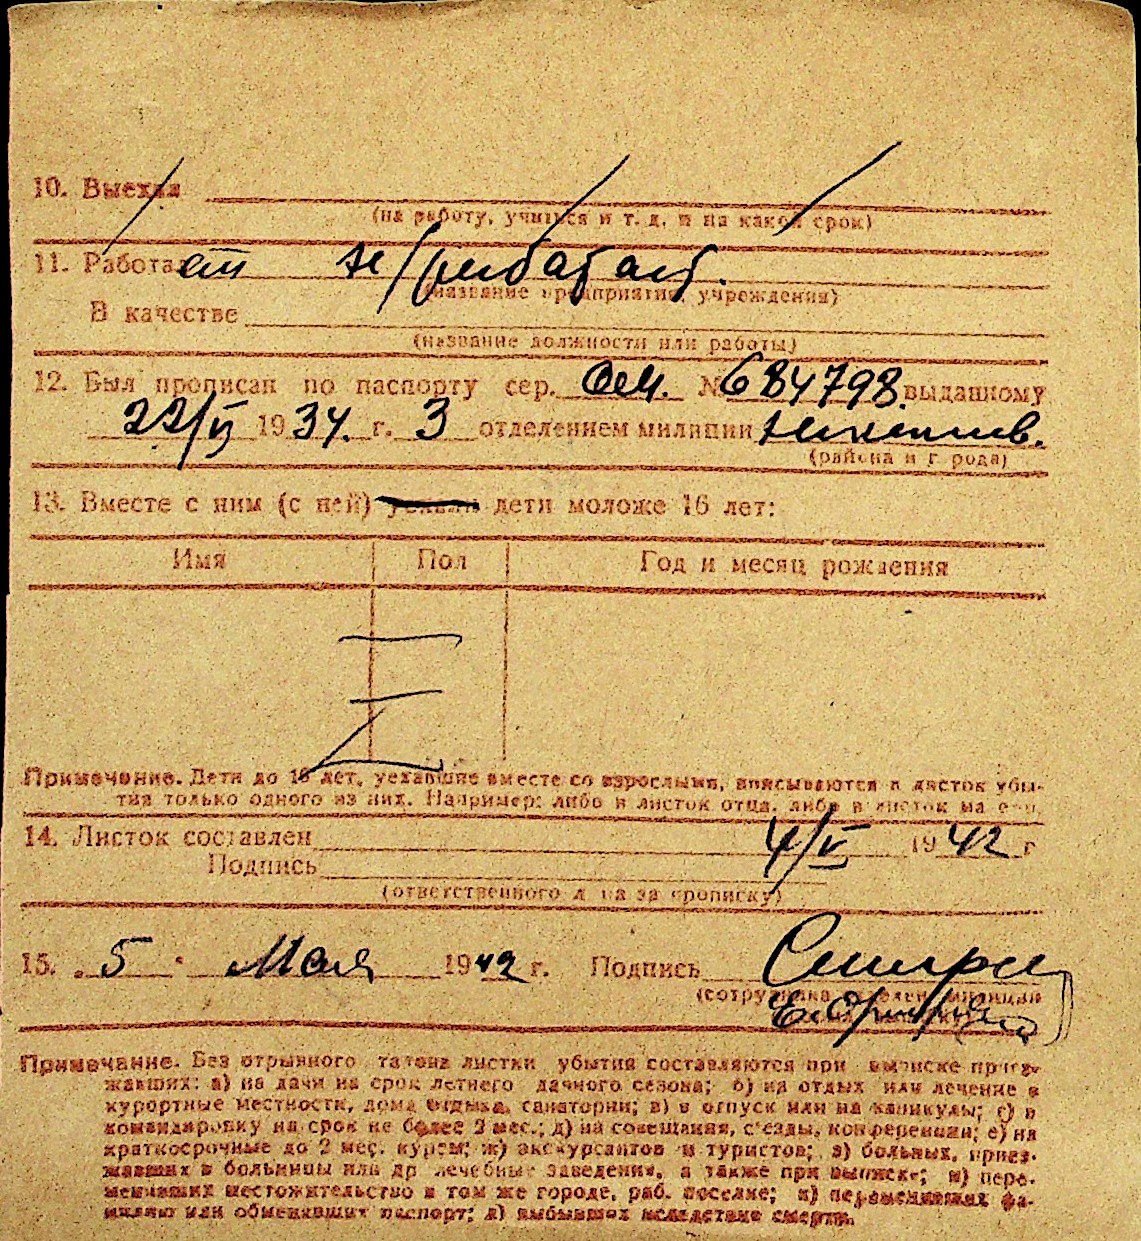 10. Выехал
(на работу, учиться и т. д. и на какой срок)
11. Работает не работает.
(название предприятия, учреждения)
В качестве
(название должности или работы)
12. Был прописан по паспорту сер. № 684798 выданному
22/VI 1934. г. 3 отделением милиции
(района и города)
13. Вместе с ним (с ней) уехали дети моложе 16 лет:
Имя Пол Год и месяц рождения
Примечание. Дети до 16 лет, уехавшие вместе со взрослыми, вписываются в листок убы-
тия только одного из них. Например: либо в листок отца, либо в листок матери.
14. Листок составлен 4/V 1942 г
Подпись
(ответственного лица за прописку)
15. 5 Мая 1942 г. Подпись
(сотрудника отделен. милиции
Примечание. Без отрывного талона листки убытия составляются при выписке приез-
жавших: а) на дачи на срок летнего дачного сезона; б) на отдых или лечение в
курортные местности, дома отдыха, санатории; в) в отпуск или на каникулы; г) в
командировку на срок не более 2 мес.; д) на совещания, съезды, конференции; е) на
краткосрочные до 2 мес. курсы; ж) экскурсантов и туристов; з) больных, приез-
жавших в больницы или др лечебные заведения, а также при выписке; и) пере-
менивших местожительство в том же городе, раб. поселке; к) переменивших фа-
милию или обменявших паспорт; л) выбывших вследствие смерти.